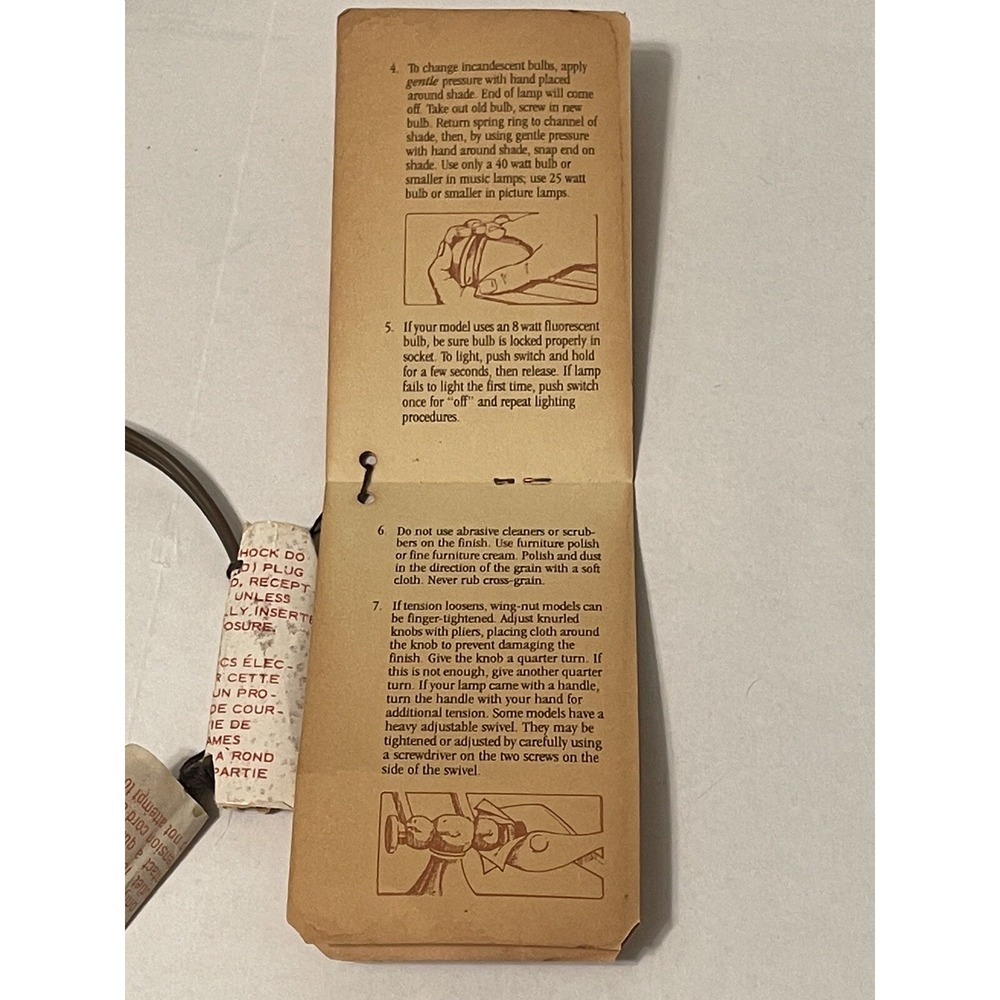 4. To change incandescent bulbs, apply
gentle pressure with hand placed
around shade. End of lamp will come
off. Take out old bulb, screw in new
bulb. Return spring ring to channel of
shade, then, by using gentle pressure
with hand around shade, snap end on
shade. Use only a 40 watt bulb or
smaller in music lamps; use 25 watt
bulb or smaller in picture lamps.
5. If your model uses an 8 watt fluorescent
bulb, be sure bulb is locked properly in
socket. To light, push switch and hold
for a few seconds, then release. If lamp
fails to light the first time, push switch
once for "off" and repeat lighting
procedures.
6. Do not use abrasive cleaners or scrub-
bers on the finish. Use furniture polish
or fine furniture cream. Polish and dust
in the direction of the grain with a soft
cloth. Never rub cross-grain.
7. If tension loosens, wing-nut models can
be finger-tightened. Adjust knurled
knobs with pliers, placing cloth around
the knob to prevent damaging the
finish. Give the knob a quarter turn. If
this is not enough, give another quarter
turn. If your lamp came with a handle,
turn the handle with your hand for
additional tension. Some models have a
heavy adjustable swivel. They may be
tightened or adjusted by carefully using
a screwdriver on the two screws on the
side of the swivel.
HOCK DO
D) PLUG
D, RECEPT
UNLESS
LLY INSERTE
OSURE.
CS ÉLEC-
R CETTE
UN PRO-
DE COUR-
IE DE
AMES
A ROND
PARTIE
not attempt to
ension cord
tact a qu